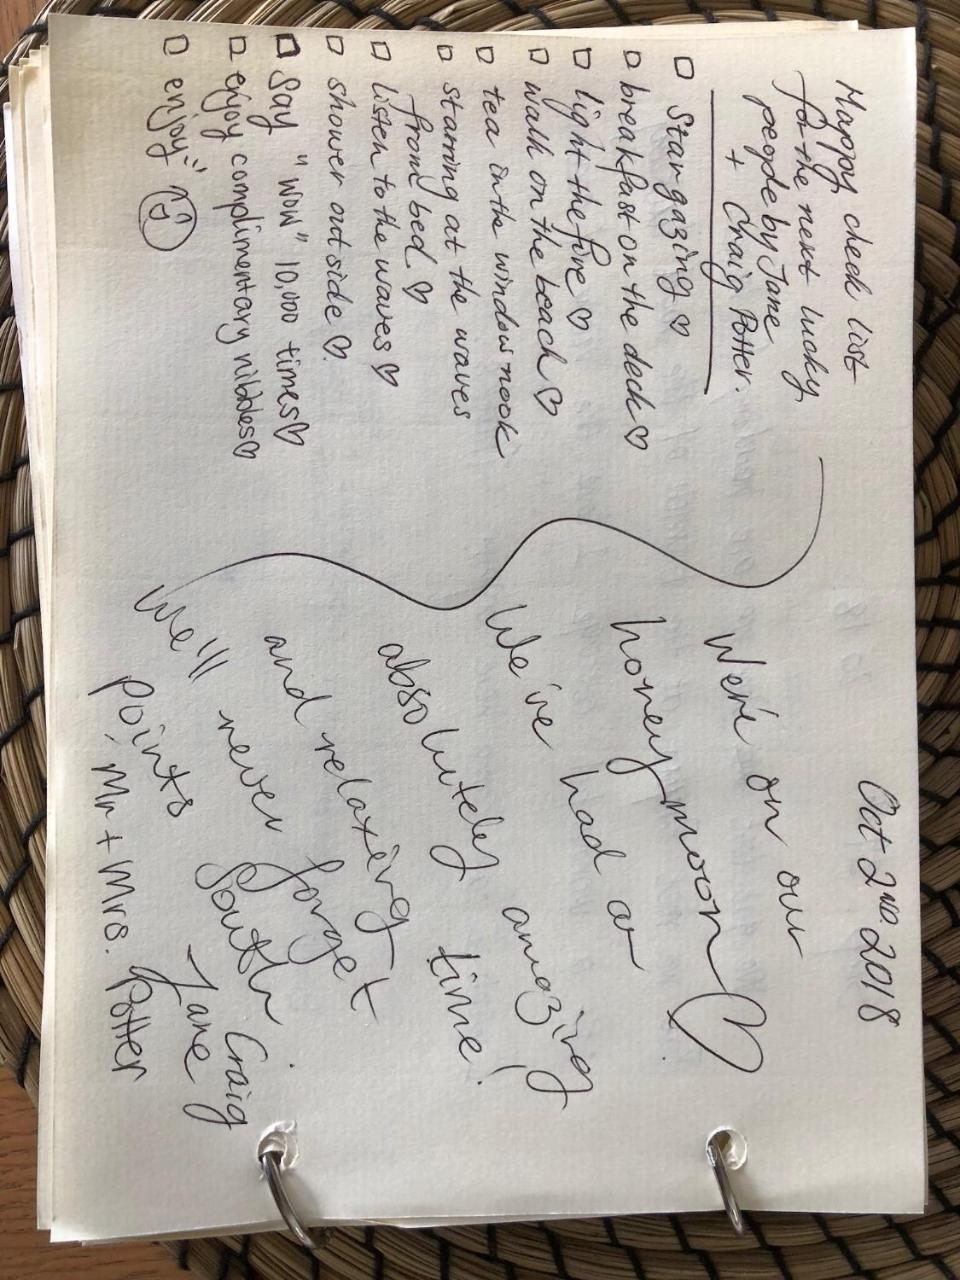 Happy check list
for the next lucky
people by Jane
+ Craig Potter.
□ Stargazing ♡
□ breakfast on the deck ♡
□ light the fire ♡
□ walk on the beach ♡
□ tea in the window nook
□ starring at the waves
from bed ♡
□ listen to the waves ♡
□ shower outside ♡
□ Say "wow" 10,000 times ♡
□ enjoy complimentary nibbles ♡
□ enjoy!
Oct 2ND. 2018
We're on our
honeymoon ♡
We've had a
absolutely amazing
and relaxing time!
We'll never forget
South
points
Craig
Jane
Mr + Mrs. Potter